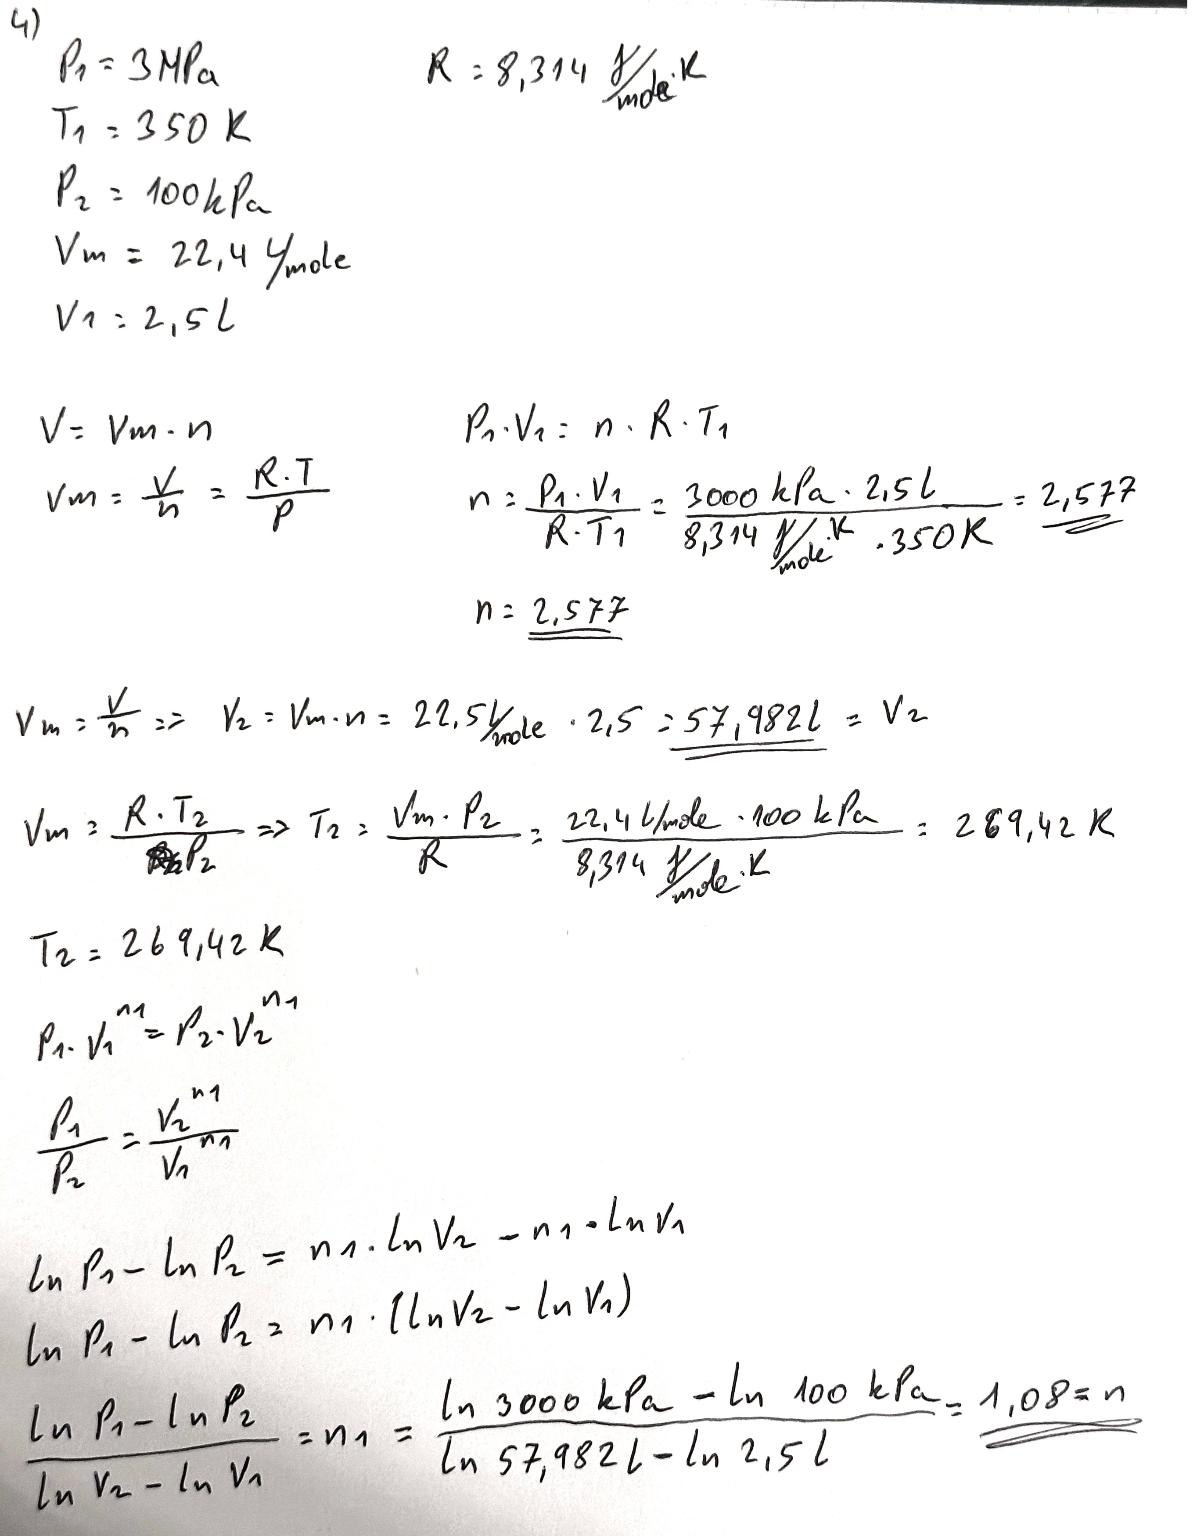 4)
P1 = 3 MPa R = 8,314 J/mole·K
T1 = 350 K
P2 = 100 kPa
Vm = 22,4 l/mole
V1 = 2,5 l
V = Vm · n P1 · V1 = n · R · T1
Vm = V/n = R·T/P n = P1·V1/R·T1 = 3000 kPa · 2,5 l / 8,314 J/mole·K · 350 K = 2,577
n = 2,577
Vm = V/n => V2 = Vm · n = 22,5 l/mole · 2,5 = 57,982 l = V2
Vm = R·T2/P2 => T2 = Vm·P2/R = 22,4 l/mole · 100 kPa / 8,314 J/mole·K = 269,42 K
T2 = 269,42 K
P1 · V1^n1 = P2 · V2^n1
P1/P2 = V2^n1/V1^n1
ln P1 - ln P2 = n1 · ln V2 - n1 · ln V1
ln P1 - ln P2 = n1 · (ln V2 - ln V1)
ln P1 - ln P2 / ln V2 - ln V1 = n1 = ln 3000 kPa - ln 100 kPa / ln 57,982 l - ln 2,5 l = 1,08 = n